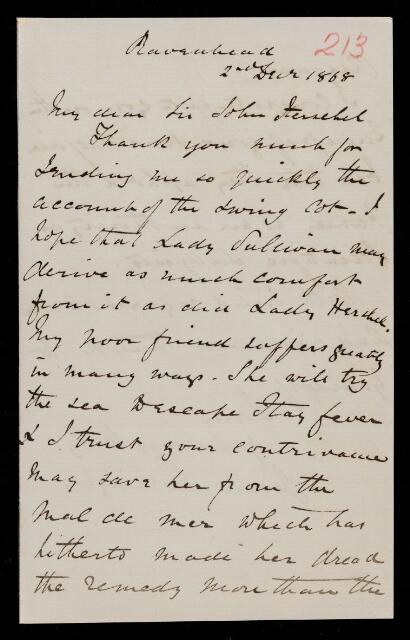 Ravenhead
213
2nd Decr 1868
My dear Sir John Herschel
Thank you much for
sending me so quickly the
account of the swing cot - I
hope that Lady Sullivan may
derive as much comfort
from it as did Lady Herschel.
My poor friend suffers greatly
in many ways. She will try
the sea to escape Hay fever
& I trust your contrivance
may save her from the
Mal de mer which has
hitherto made her dread
the remedy more than the